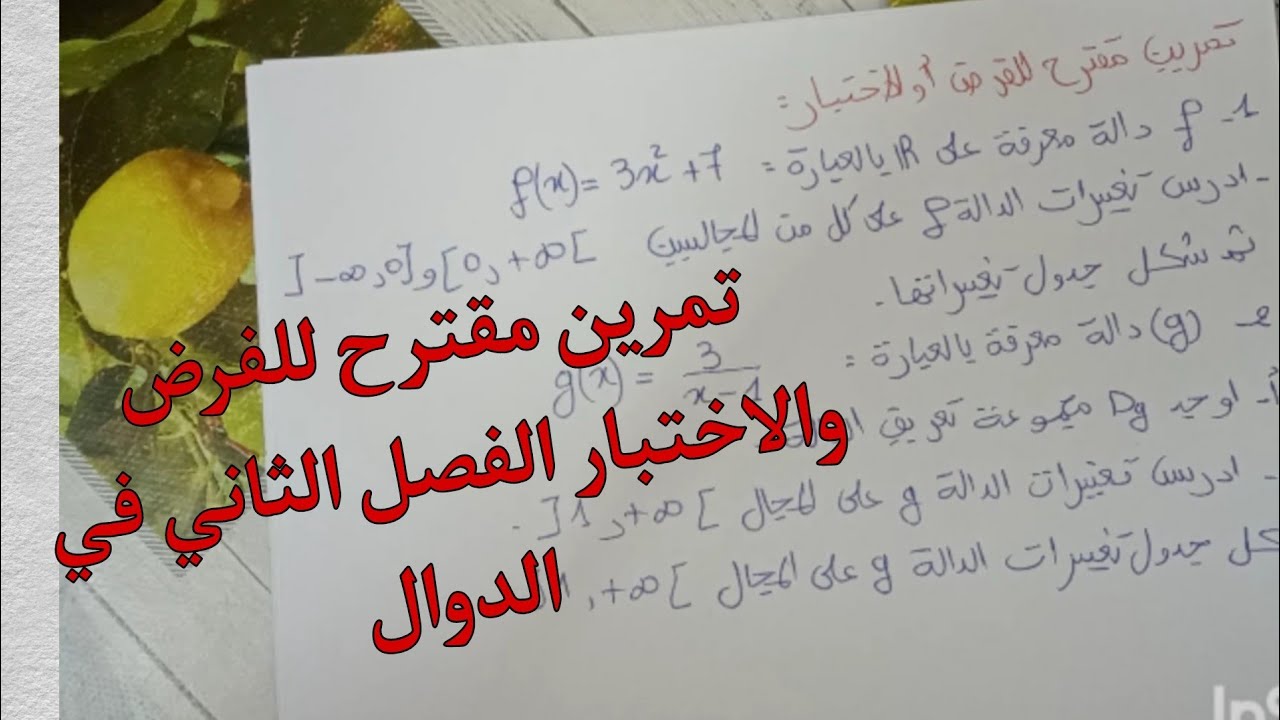 تمرين مقترح للفرض أو الاختبار:
1- f دالة معرفة على ℝ بالعبارة: f(x)= 3x²+7
- ادرس تغيرات الدالة f على كل من المجاليين [0,+∞[ و ]-∞,0]
ثم شكل جدول تغيراتها.
2- (g) دالة معرفة بالعبارة: g(x) = 3/(x-1)
أ- اوجد Dg مجموعة تعريف
- ادرس تغيرات الدالة g على المجال ]1,+∞[.
جدول تغيرات الدالة g على المجال 1,+∞[
تمرين مقترح للفرض
والاختبار الفصل الثاني في
الدوال